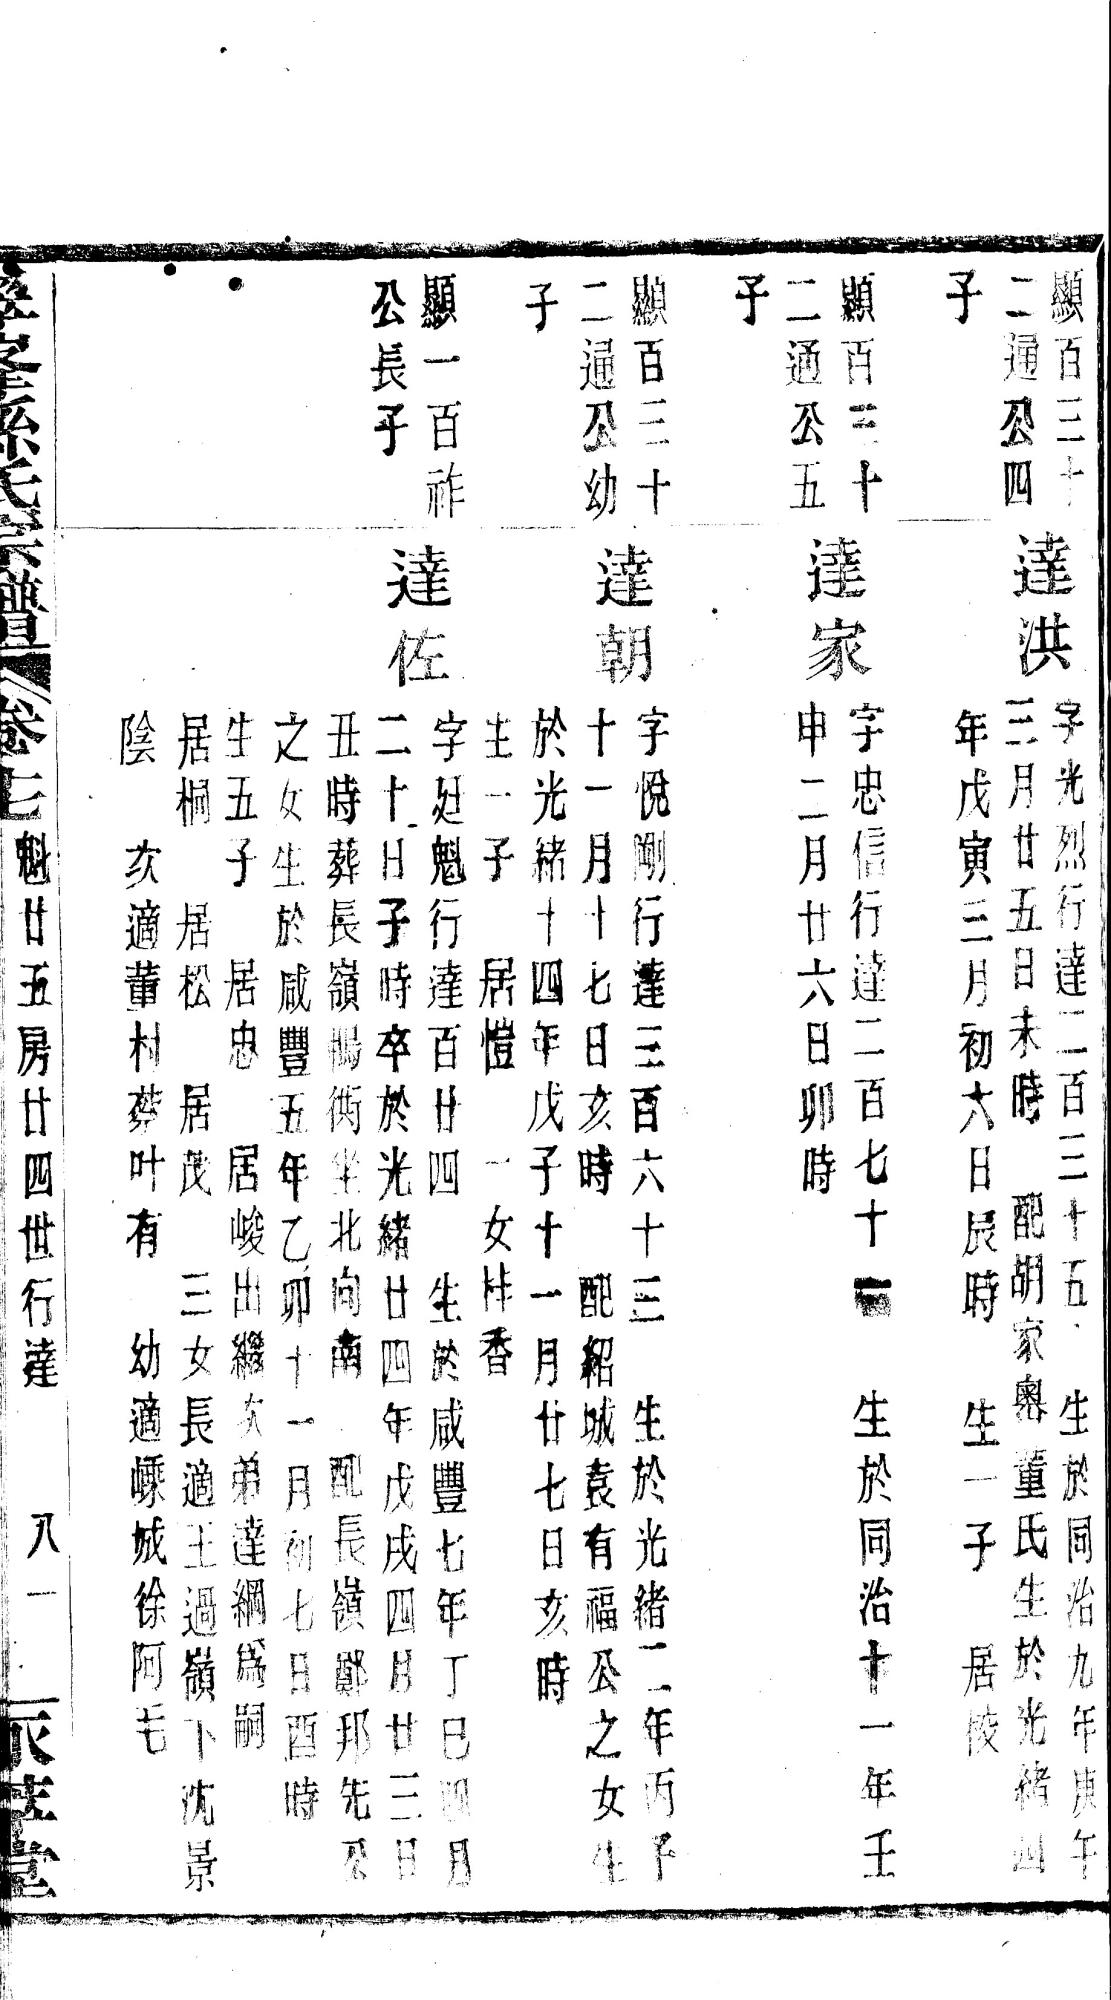 顯百三十
二通公四
子
達洪
字光烈行達二百三十五 生於同治九年庚午
三月廿五日未時 配胡家奧董氏生於光緒四
年戊寅三月初六日辰時 生一子 居
顯百三十
二通公五
子
達家
字忠信行達二百七十一 生於同治十一年壬
申二月廿六日卯時
顯百三十
二通公幼
子
達朝
字悅剛行達三百六十三 生於光緒二年丙子
十一月十七日亥時 配紹城袁有福公之女生
於光緒十四年戊子十一月廿七日亥時
生一子 居愷 一女桂香
顯一百祚
公長子
達佐
字廷魁行達百廿四 生於咸豐七年丁巳四月
二十日子時卒於光緒廿四年戊戌四月廿三日
丑時葬長嶺 坐北向南 配長嶺鄭邦先公
之女生於咸豐五年乙卯十一月初七日酉時
生五子 居忠 居峻出繼次弟達綱爲嗣
居桐 居松 居茂 三女長適王過嶺下沈景
陰 次適董村蔡叶有 幼適嵊城徐阿毛
孫氏宗譜 卷七 魁廿五房廿四世行達 八一 堂